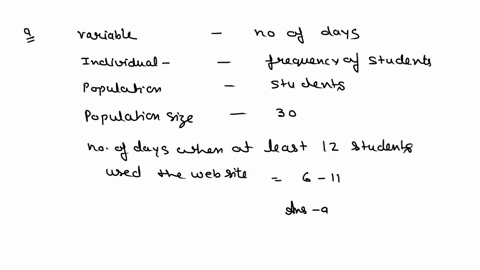 a variable - no of days
Individual - - frequency of students
Population - students
Population size - 30
no. of days when at least 12 students
used the website = 6-11
Ans - a